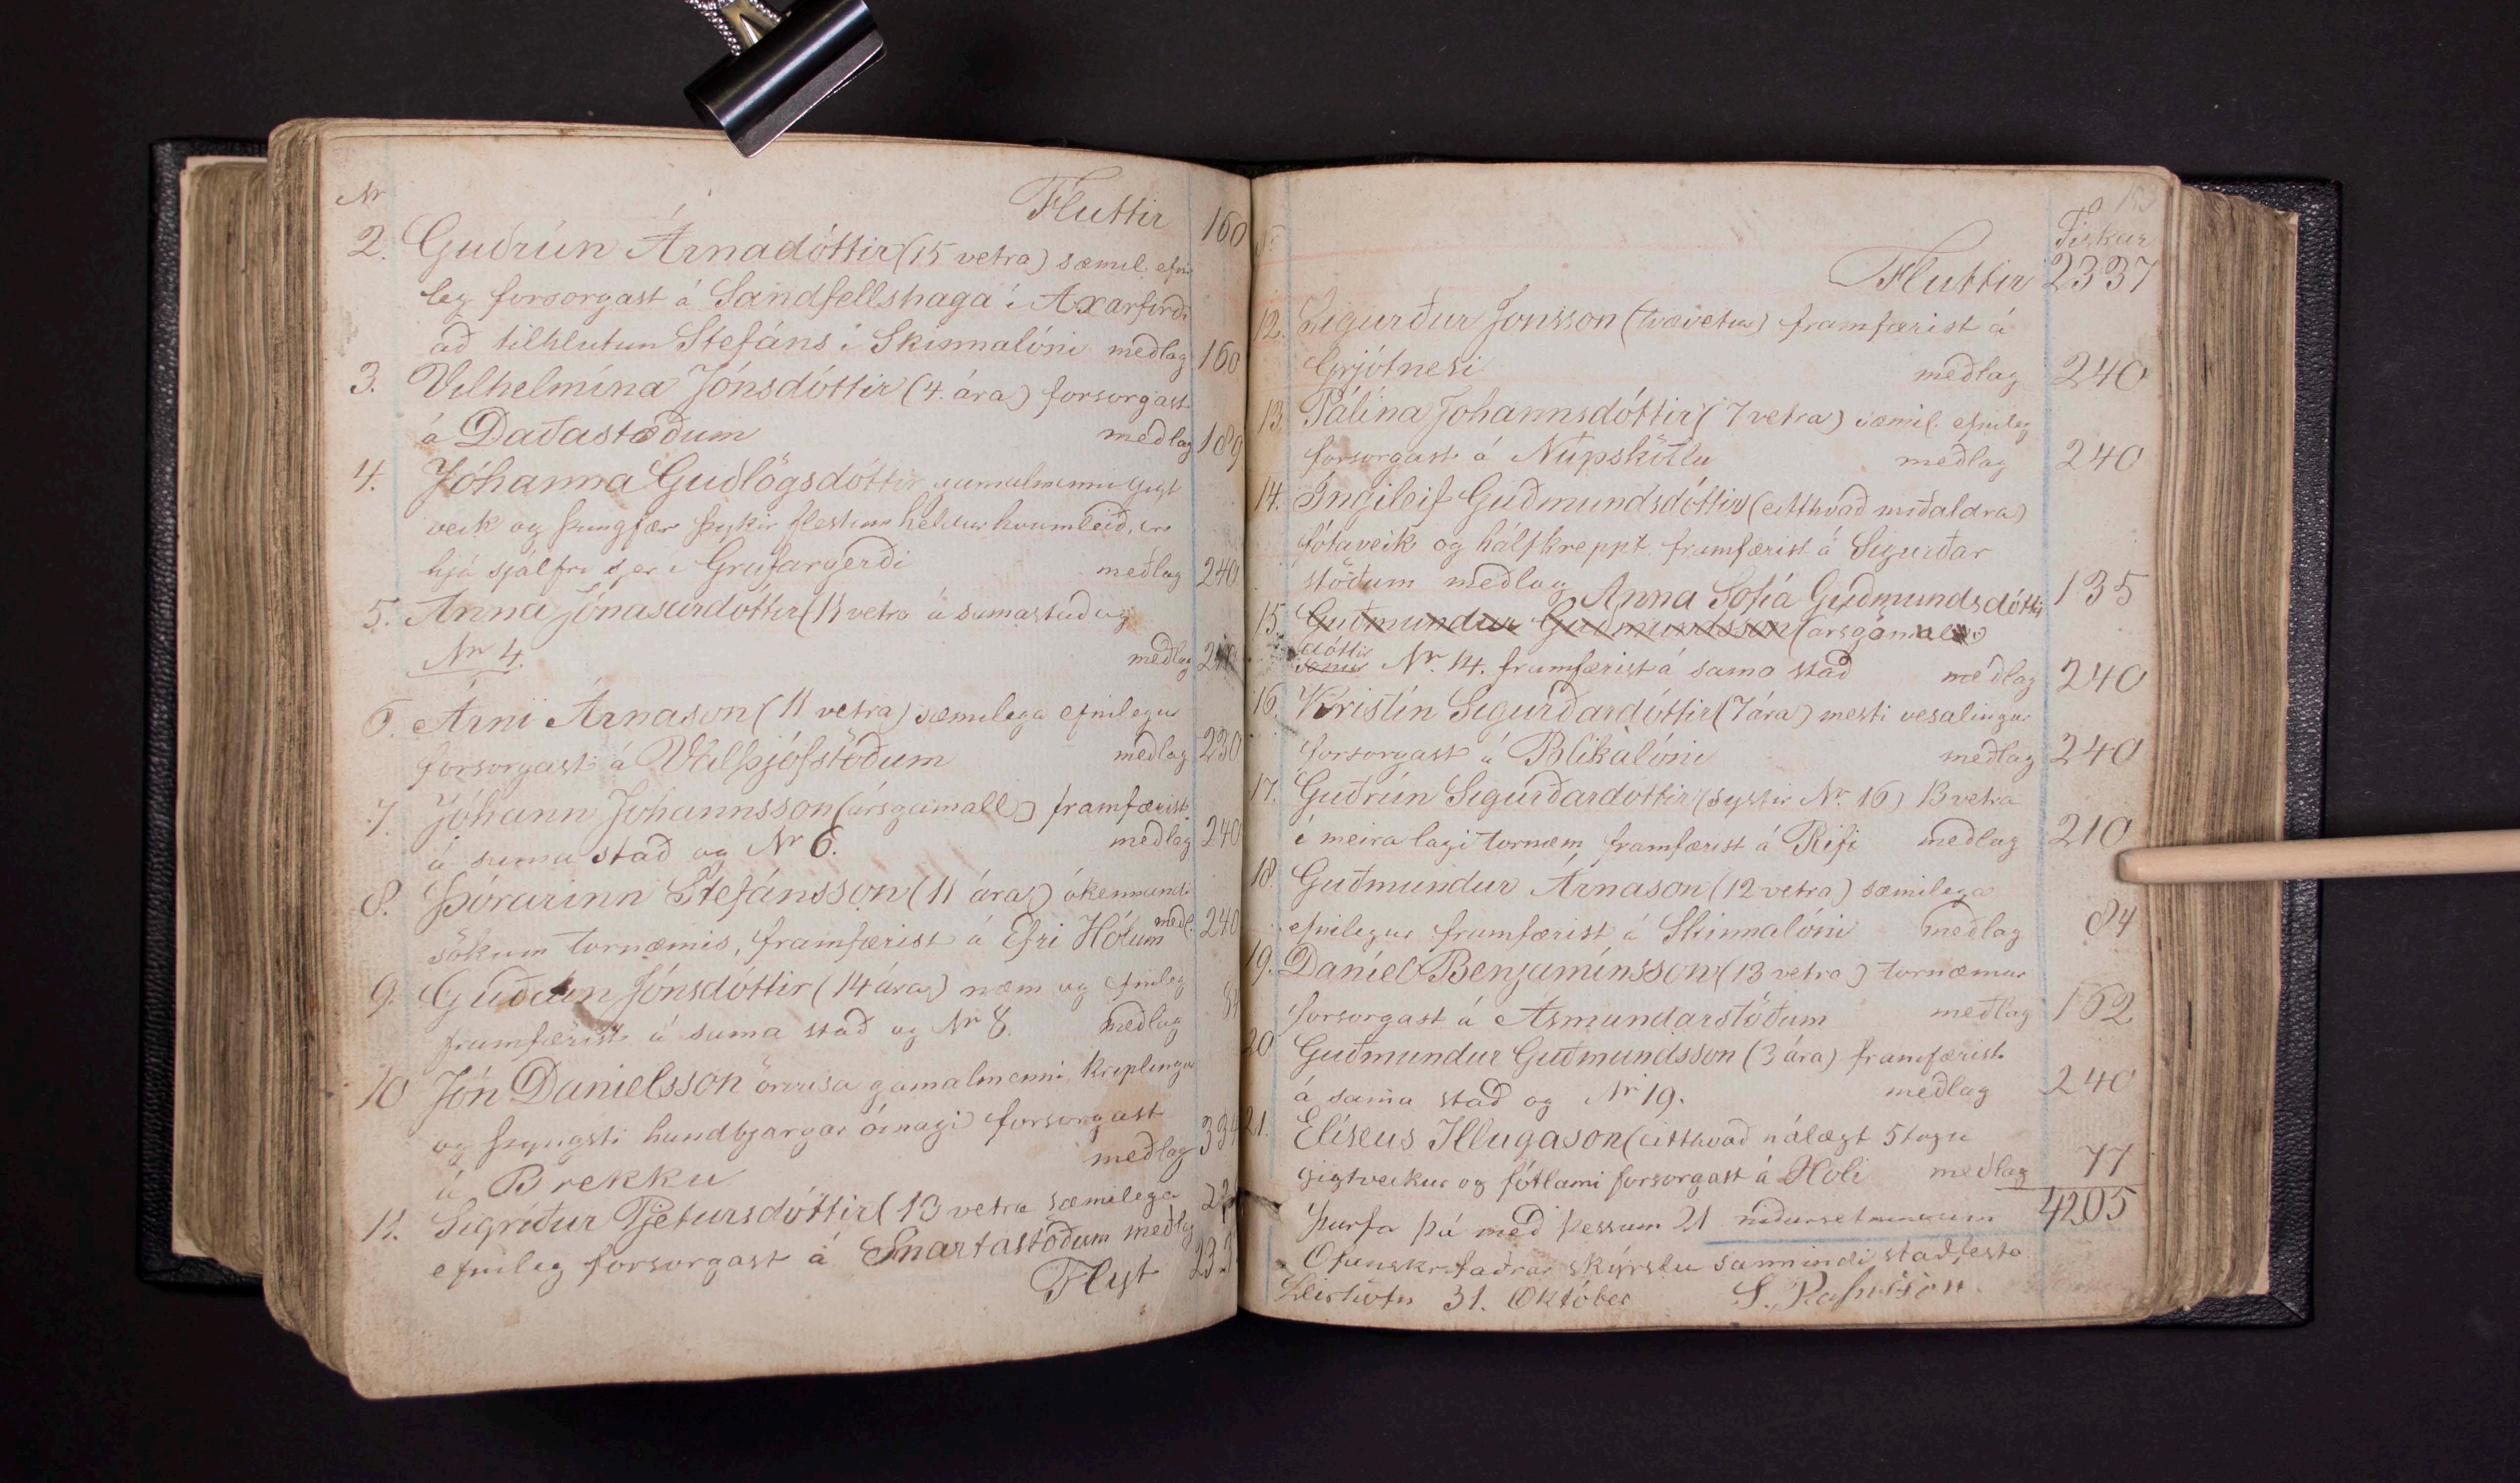 Nr Fluttir 160
2. Guðrún Árnadóttir (15 vetra) sæmil. efni
leg forsorgast á Sandfellshaga í Axarfirði
að tilhlutun Stefáns í Skinnalóni meðlag 160
3. Vilhelmína Jónsdóttir (4. ára) forsorgast
á Daðastöðum meðlag 189
4. Jóhanna Guðlögsdóttir gamalmenni gigt
veik og þungfær þykir flestum heldur hvumleið, er
hjá sjálfri sjer í Grafargerði meðlag 240
5. Anna Jónasardóttir (11 vetra á sama stað og
Nr 4. meðlag
6. Árni Árnason (11 vetra) sæmilega efnilegur
forsorgast á Valþjófstöðum meðlag 230
7. Jóhann Jóhannsson (ársgamall) framfærist
á sama stað og Nr 6. meðlag 240
8. Þórarinn Stefánsson (11 ára) ókennandi
sökum tornæmis, framfærist á Efri Hólum meðl. 240
9. Guðrún Jónsdóttir (14 ára) næm og efnileg
framfærist á sama stað og Nr 8. meðlag 84
10 Jón Danielsson örvasa gamalmenni, kriplingur
og þyngsti handbjargar ómagi forsorgast
á Brekku meðlag 334
11. Sigríður Pjetursdóttir (13 vetra sæmilega
efnileg forsorgast á Snartastöðum meðlag
Flyt 233
153
Fiskar
Nr Fluttir 2337
12. Sigurður Jónsson (tvævetur) framfærist á
Grjótnesi meðlag 240
13. Pálína Jóhannsdóttir (7 vetra) sæmil. efnileg
forsorgast á Núpskötlu meðlag 240
14. Ingileif Guðmundsdóttir (eitthvað miðaldra)
fótaveik og hálfkreppt framfærist á Sigurðar
stöðum meðlag 135
Anna Sofía Guðmundsdóttir
15. Guðmundur Guðmundsson (ársgömul)
dóttir
sonur Nr. 14. framfærist á sama stað meðlag 240
16. Kristín Sigurðardóttir (7 ára) mesti vesalingur
forsorgast á Blikalóni meðlag 240
17. Guðrún Sigurðardóttir (systir Nr. 16) 13 vetra
í meira lagi tornæm framfærist á Rifi meðlag 210
18. Guðmundur Árnason (12 vetra) sæmilega
efnilegur framfærist á Skinnalóni meðlag 84
19. Daníel Benjamínsson (13 vetra) tornæmur
forsorgast á Asmundarstöðum meðlag 162
20 Guðmundur Guðmundsson (3 ára) framfærist
á sama stað og Nr 19. meðlag 240
21. Elíseus Illugason (eitthvað nálægt 5tugu
gigtveikur og fótlami forsorgast á Hóli meðlag 77
Þurfa þá með þessum 21 niðursetningum 4205
Ofanskrifaðrar skýrslu sannindi staðfesta
Leirhöfn 31. Október S. Rafnsson